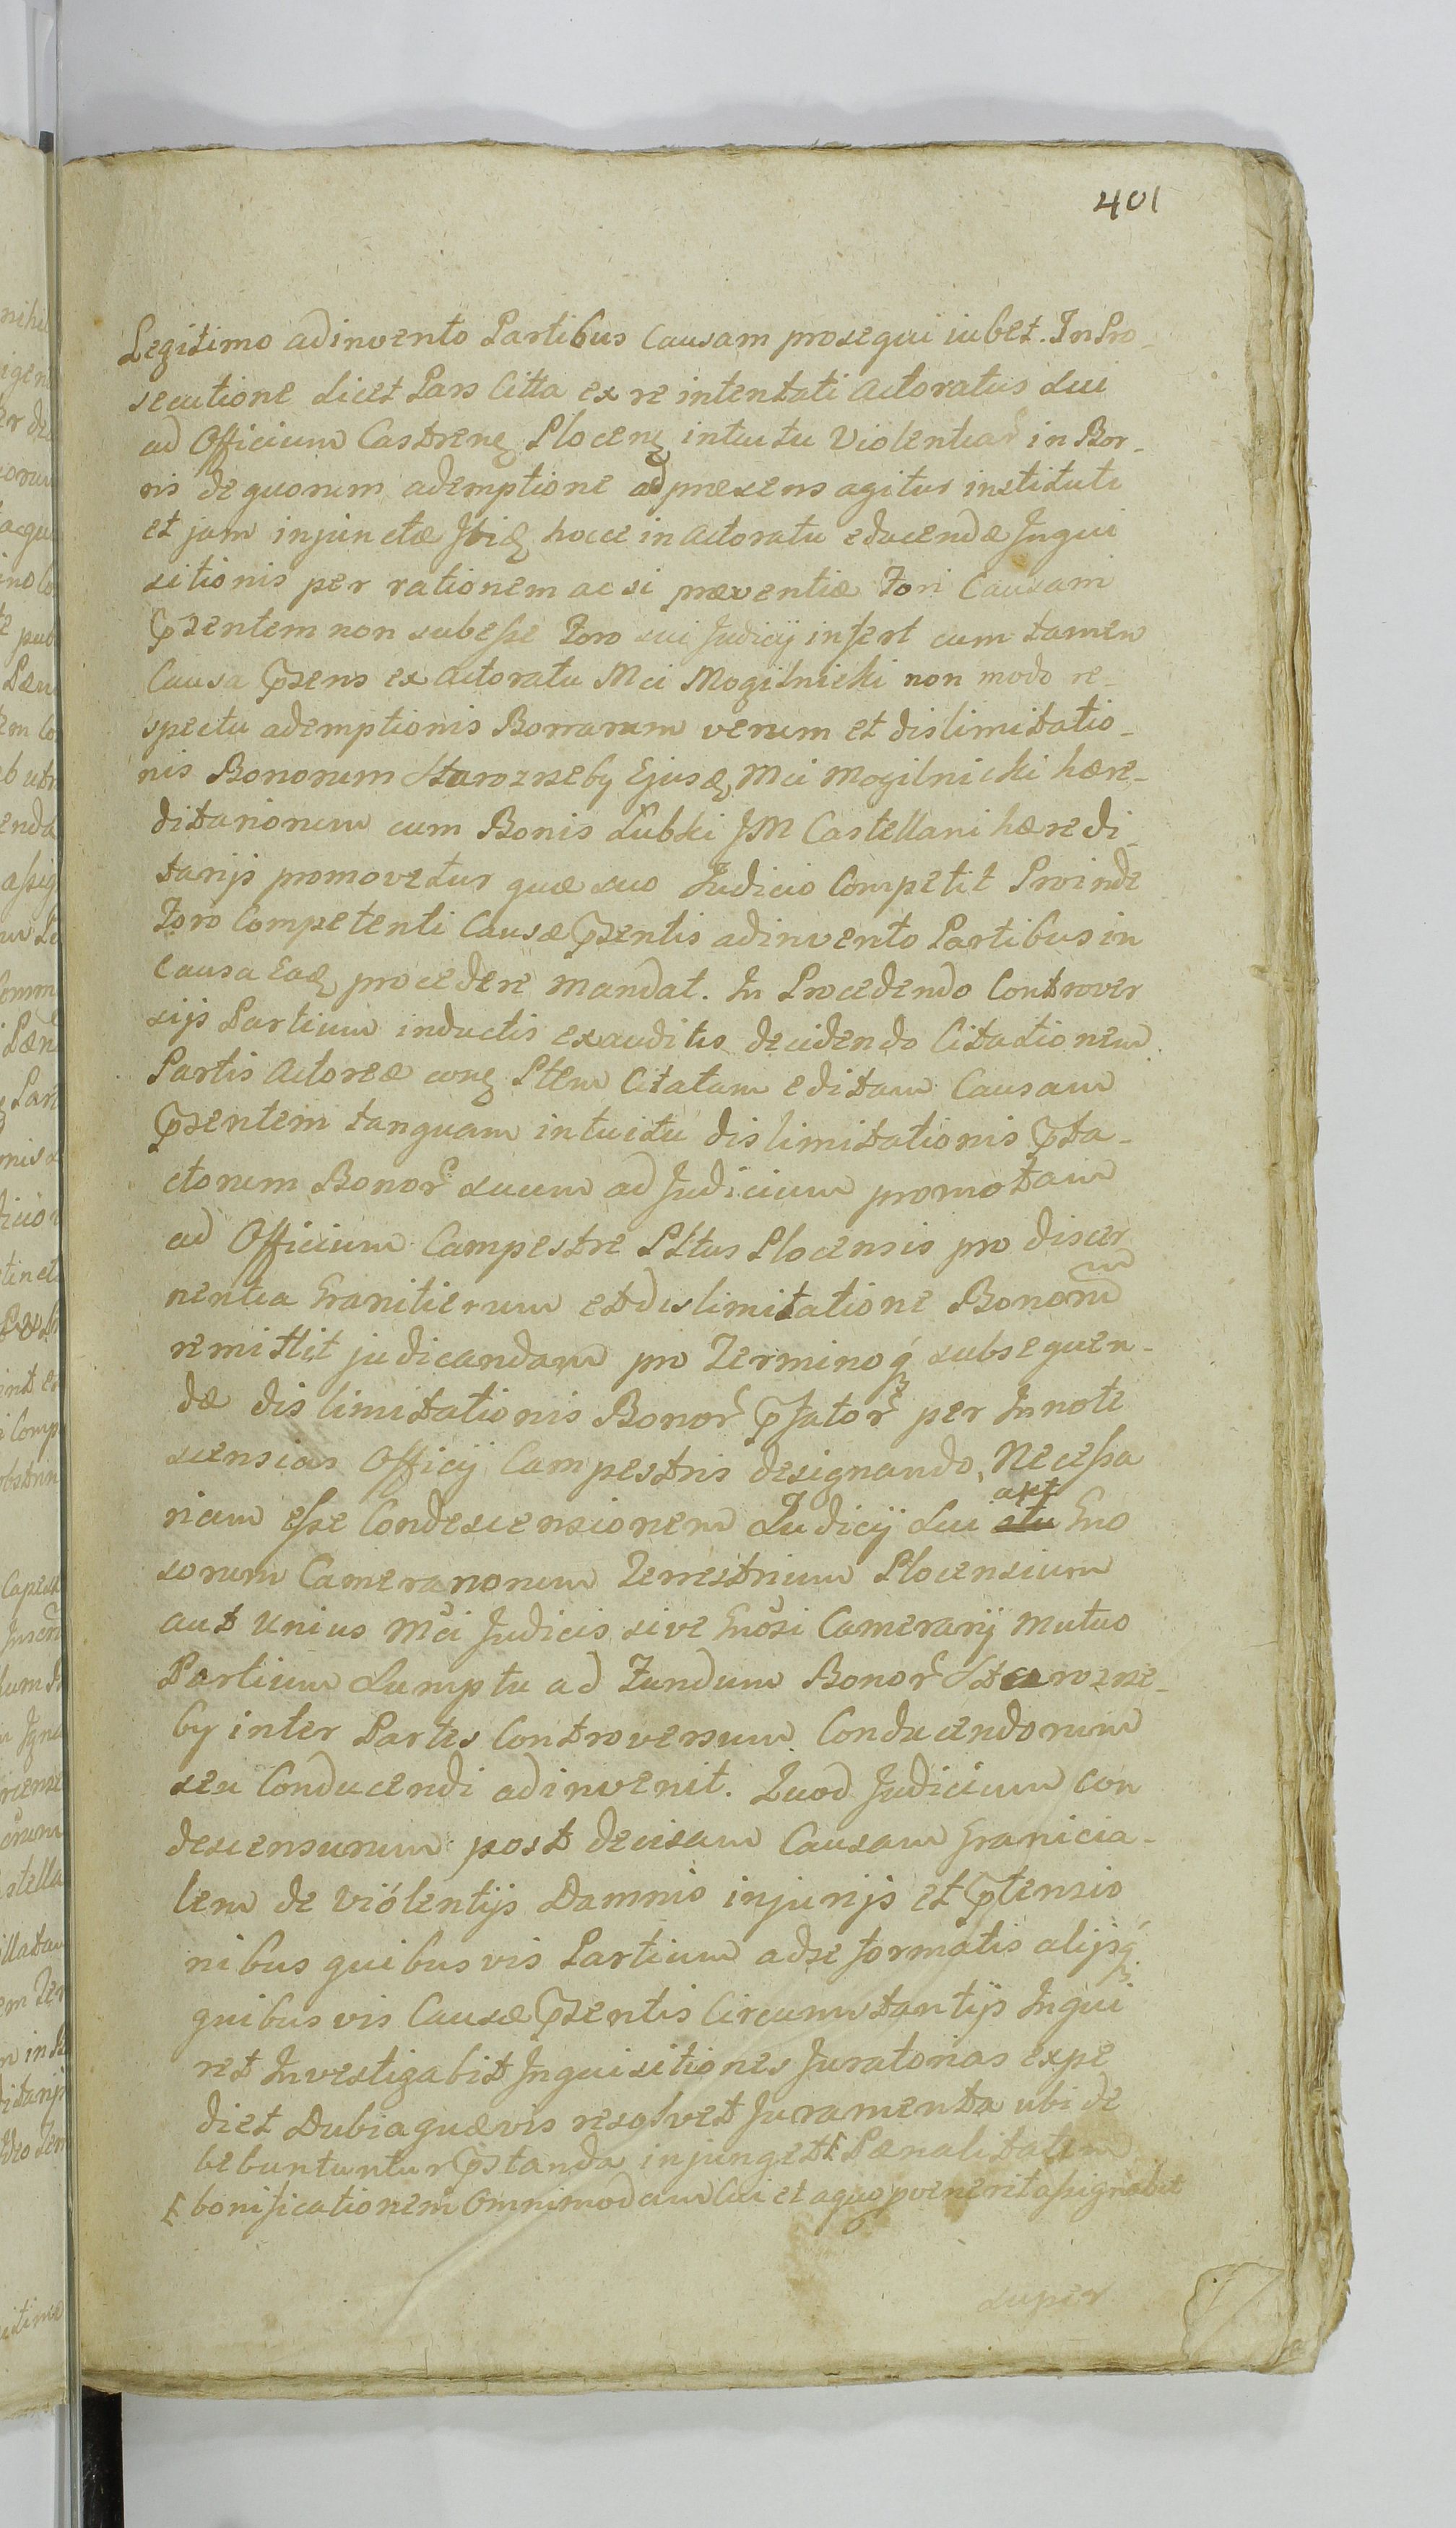 401
Legitimo adinvento Partibus Causam prosequi iubet. In Pro-
secutione licet Pars Citta ex re intentati Actoratus sui
ad Officium Castrenȩ Plocenȩ intuitu Violentiar in Bor-
ris de quorum ademptione ad præsens agitur instituti
et jam injunctæ hocce in Actoratu educendæ Inqui
sitionis per rationem ac si præventiæ Fori Causam
pzentem non subesse Foro sui Judicij infert cum tamen
Causa pzens ex Actoratu Mci Mogilnicki non modo re-
spectu ademptionis Borrarum verum et dislimitatio-
nis Bonorum Starozreby Ejusꝗ Mci Mogilnicki hære-
ditariorum cum Bonis Lubki JM Castellani hæredi-
tarijs promovetur quæ suo Judicio Competit Proinde
Foro Competenti Causæ pzentis adinvento Partibus in
Causa Eaꝗ procedere mandat. In Procedendo Controver
sijs Partium inductis exauditis decidendo Citationem
Partis Actoreæ conȩ Ptem Citatam editam Causam
pzentem tanquam intuitu dislimitationis pta-
ctorum Bonor̃ suum ad Judicium promotam
ad Officium Campestre Pltus Plocensis pro discer
nentia Granitierum et dislimitatione Bonorum
remittit judicandam pro Terminoq́ subsequen-
dæ dislimitationis Bonor̃ pfator̃ per Innote
scencias Officij Campestris designando, Necessa
riam esse Condescensionem Judicij Sui aut Gno
sorum Camerariorum Terrestrium Plocensium
aut unius Mci Judicis sive Gnosi Camerarij mutuo
Partium Sumptu ad Fundum Bonor̃ Starozre-
by inter Partes Controversum Conducendorum
seu Conducendi adinvenit. Quod Judicium con
descensurum post decisam Causam Granicia-
lem de violentijs Damnis injurijs et ptensio
nibus quibusvis Partium ad se formatis alijsq́
quibusvis Causæ pzentis Circumstantijs Inqui
ret Investigabit Inquisitiones Juratorias expe
diet Dubia quævis resolvet Juramenta ubi de
bebuntuntur pstanda injunget Pænalitatem
bonificationem Omnimodam Cui et a quo pvenerit assignabit
super